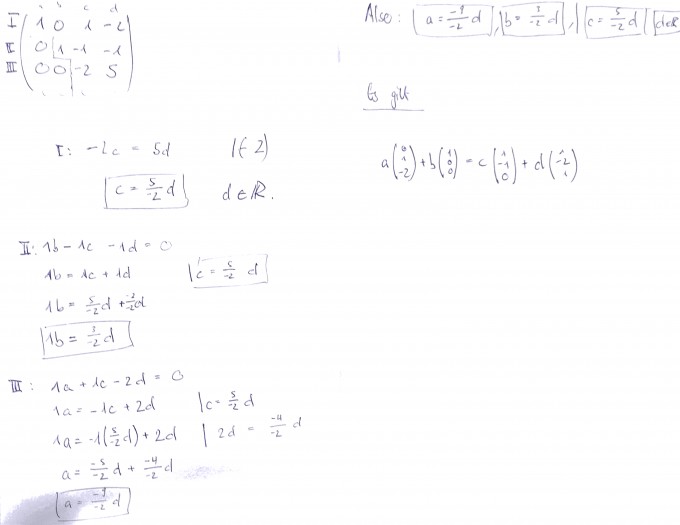 a b c d
I 1 0 1 -2
II 0 1 -1 -1
III 0 0 -2 5
I: -2c = 5d |(-2)
c = 5/-2 d d ∈ ℝ.
II: 1b - 1c - 1d = 0
1b = 1c + 1d |c = 5/-2 d
1b = 5/-2 d + -2/-2 d
1b = 3/-2 d
III: 1a + 1c - 2d = 0
1a = -1c + 2d |c = 5/-2 d
1a = -1(5/-2 d) + 2d | 2d = -4/-2 d
a = -5/-2 d + -4/-2 d
a = -9/-2 d
Also: a = -9/-2 d, b = 3/-2 d, c = 5/-2 d d ∈ ℝ
Es gilt
a (0 1 -2) + b (1 0 0) = c (1 -1 0) + d (1 -2 1)